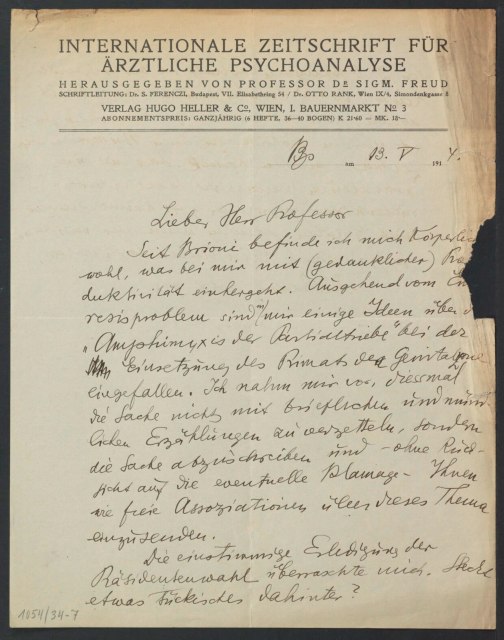 INTERNATIONALE ZEITSCHRIFT FÜR
ÄRZTLICHE PSYCHOANALYSE
HERAUSGEGEBEN VON PROFESSOR DR SIGM. FREUD
SCHRIFTLEITUNG: Dr. S. FERENCZI, Budapest, VII. Elisabethring 54 / Dr. OTTO RANK, Wien IX/4, Simondenkgasse 8
VERLAG HUGO HELLER & Co., WIEN, I. BAUERNMARKT No 3
ABONNEMENTSPREIS: GANZJÄHRIG (6 HEFTE, 36—40 BOGEN) K 21·60 = MK. 18·—
Bp am 13. V 1914.
Lieber Herr Professor
Seit Brioni befinde ich mich körperlich
wohl, was bei mir mit (gedanklicher) Pro
duktivität einhergeht. Ausgehend vom
resisproblem sind mir einige Ideen über d
„Amphimyxis der Partialtriebe" bei der
Einsetzung des Primats der Genitalzone
eingefallen. Ich nahm mir vor, diesmal
die Sache nicht mit brieflichen und münd
lichen Erzählungen zu verzetteln, sondern
die Sache abzuschreiben und – ohne Rück-
sicht auf die eventuelle Blamage – Ihnen
wie freie Assoziationen über dieses Thema
einzusenden.
Die einstimmige Erledigung der
Präsidentenwahl überraschte mich. Steckt
etwas Tückisches dahinter?
1054/34-7